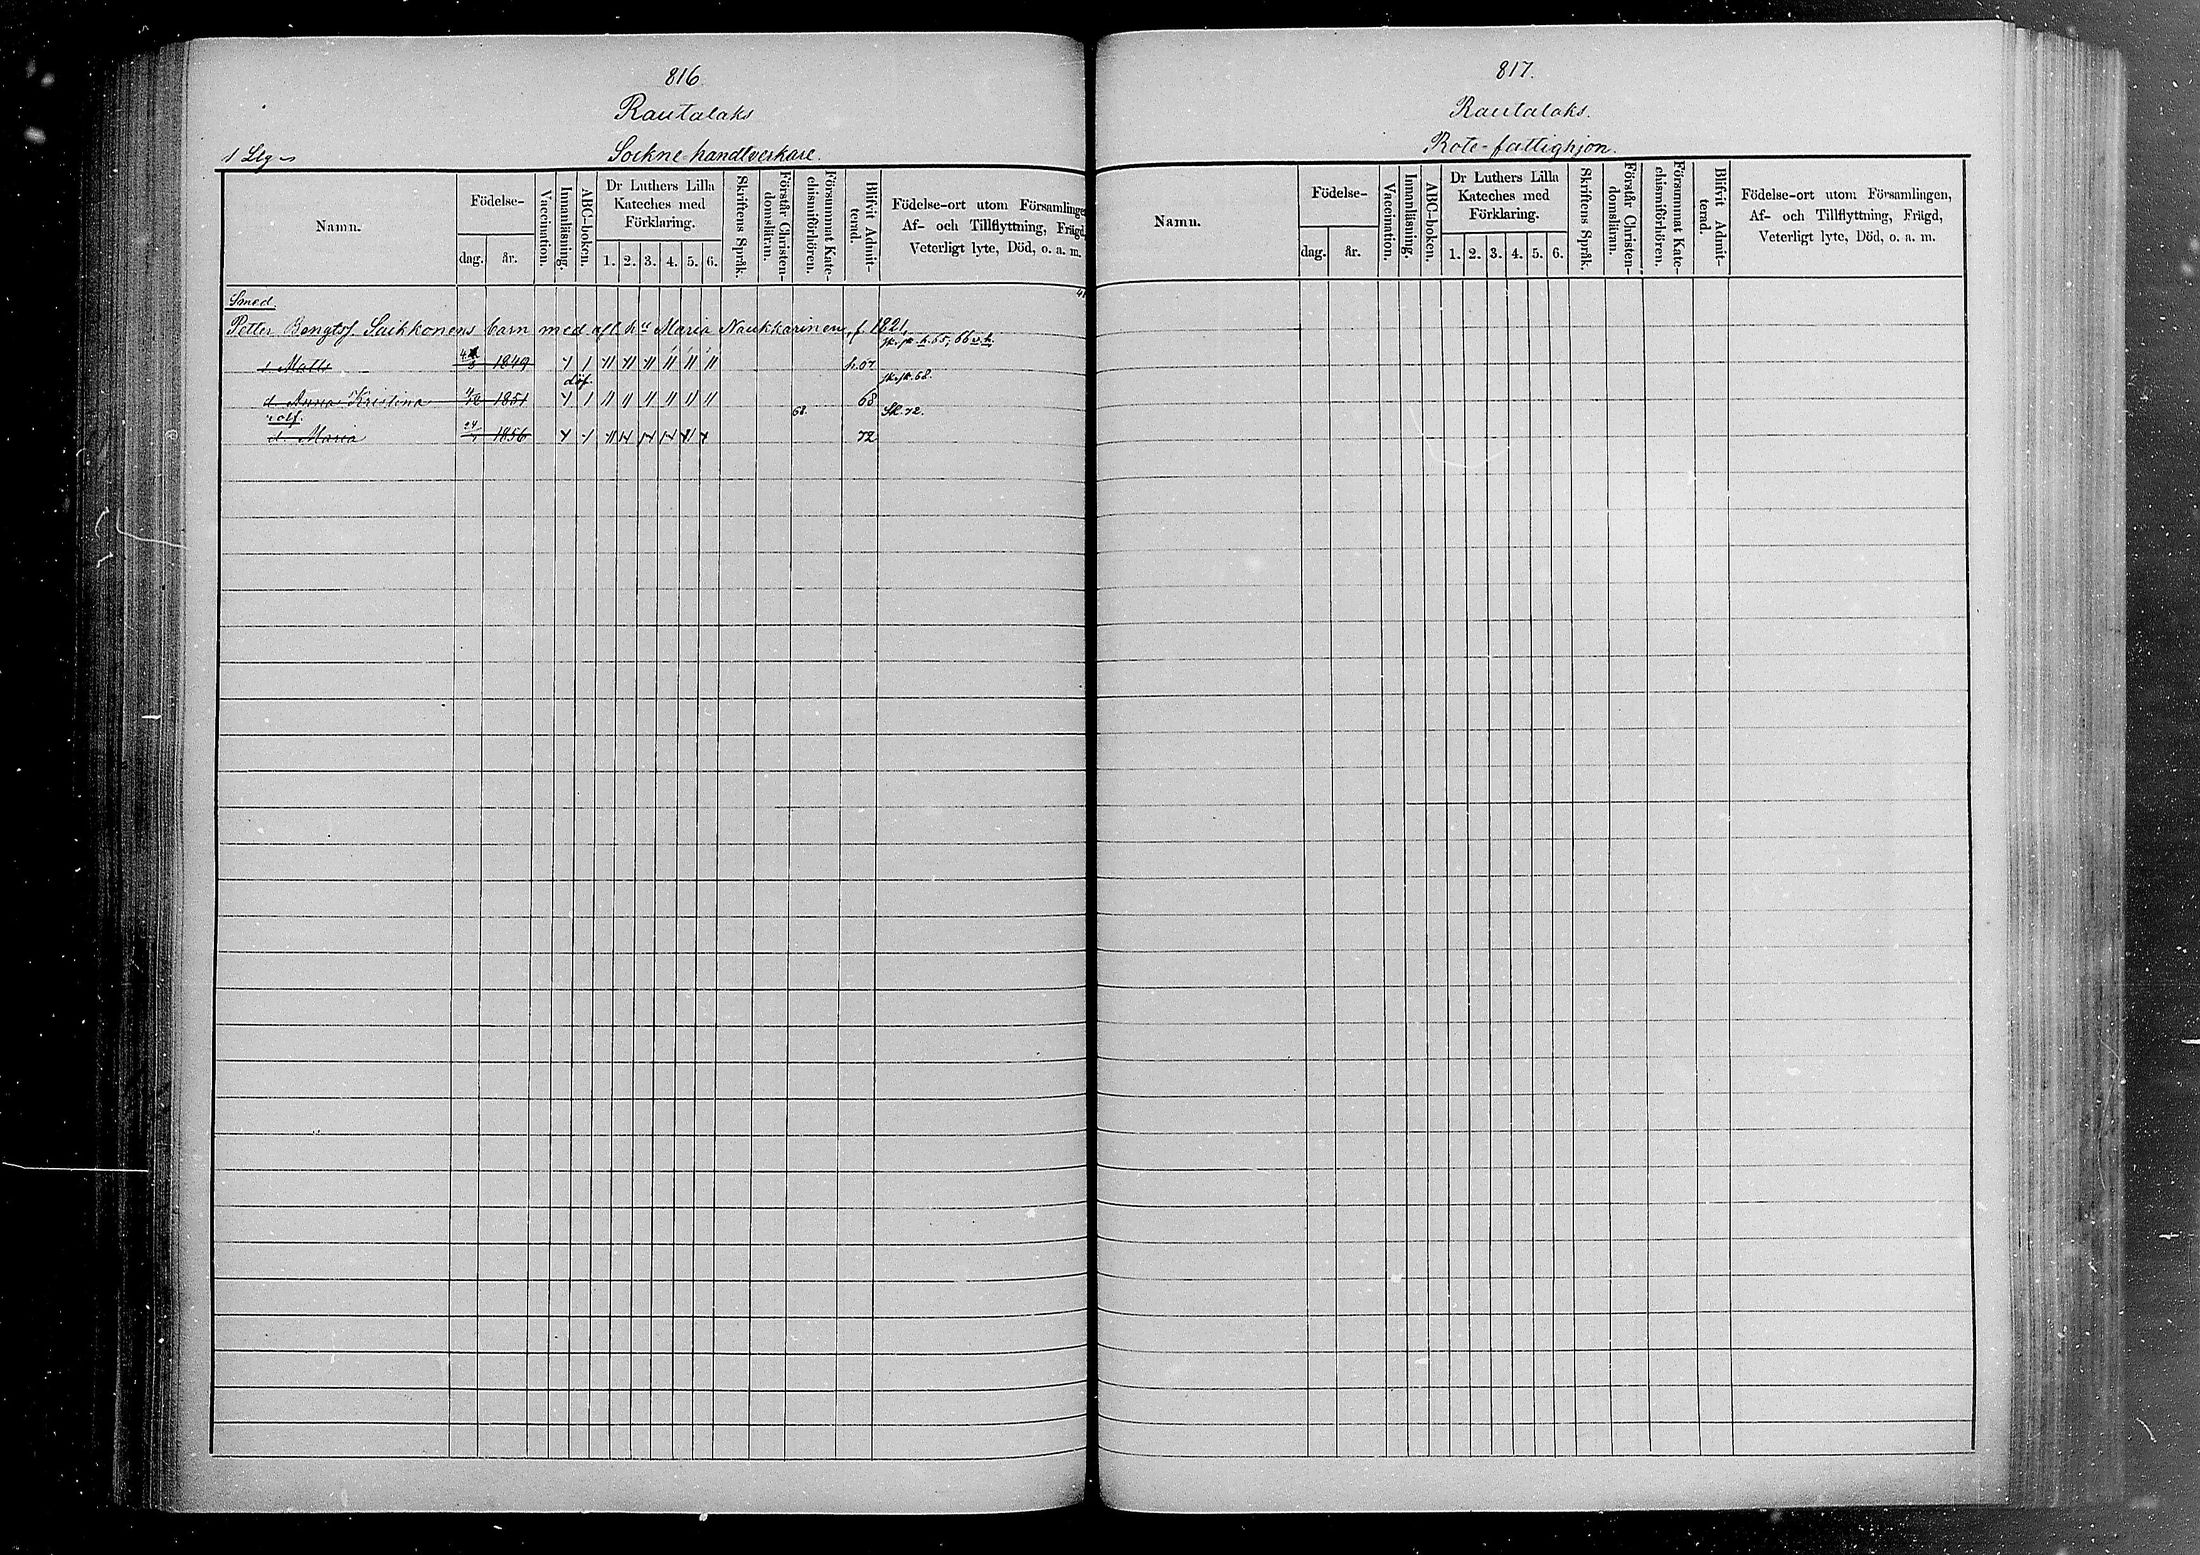 816.
Rautalaks
1 Llg
Sockne-handtverkare.
Namn.
Födelse-
dag.
år.
Vaccination.
Innanläsning.
ABC-boken.
Dr Luthers Lilla
Kateches med
Förklaring.
1. 2. 3. 4. 5. 6.
Skriftens Språk.
Förstår Christen-
domsläran.
Försummat Kate-
chismiförhören.
Blifvit Admit-
terad.
Födelse-ort utom Församlingen,
Af- och Tillflyttning, Frägd,
Veterligt lyte, Död, o. a. m.
41
Smed.
Petter Bengtsf. Saikkonens barn med afl. hu Maria Naukkarinen f 1821
h. 65, 66
s Matts 1849
döf. 68.
d. Anna Kristina 1851 68
68. Sl. 72.
d. Maria 24 1856 72
817.
Rautalaks.
Rote-fattighjon.
Namn.
Födelse-
dag.
år.
Vaccination.
Innanläsning.
ABC-boken.
Dr Luthers Lilla
Kateches med
Förklaring.
1. 2. 3. 4. 5. 6.
Skriftens Språk.
Förstår Christen-
domsläran.
Försummat Kate-
chismiförhören.
Blifvit Admit-
terad.
Födelse-ort utom Församlingen,
Af- och Tillflyttning, Frägd,
Veterligt lyte, Död, o. a. m.